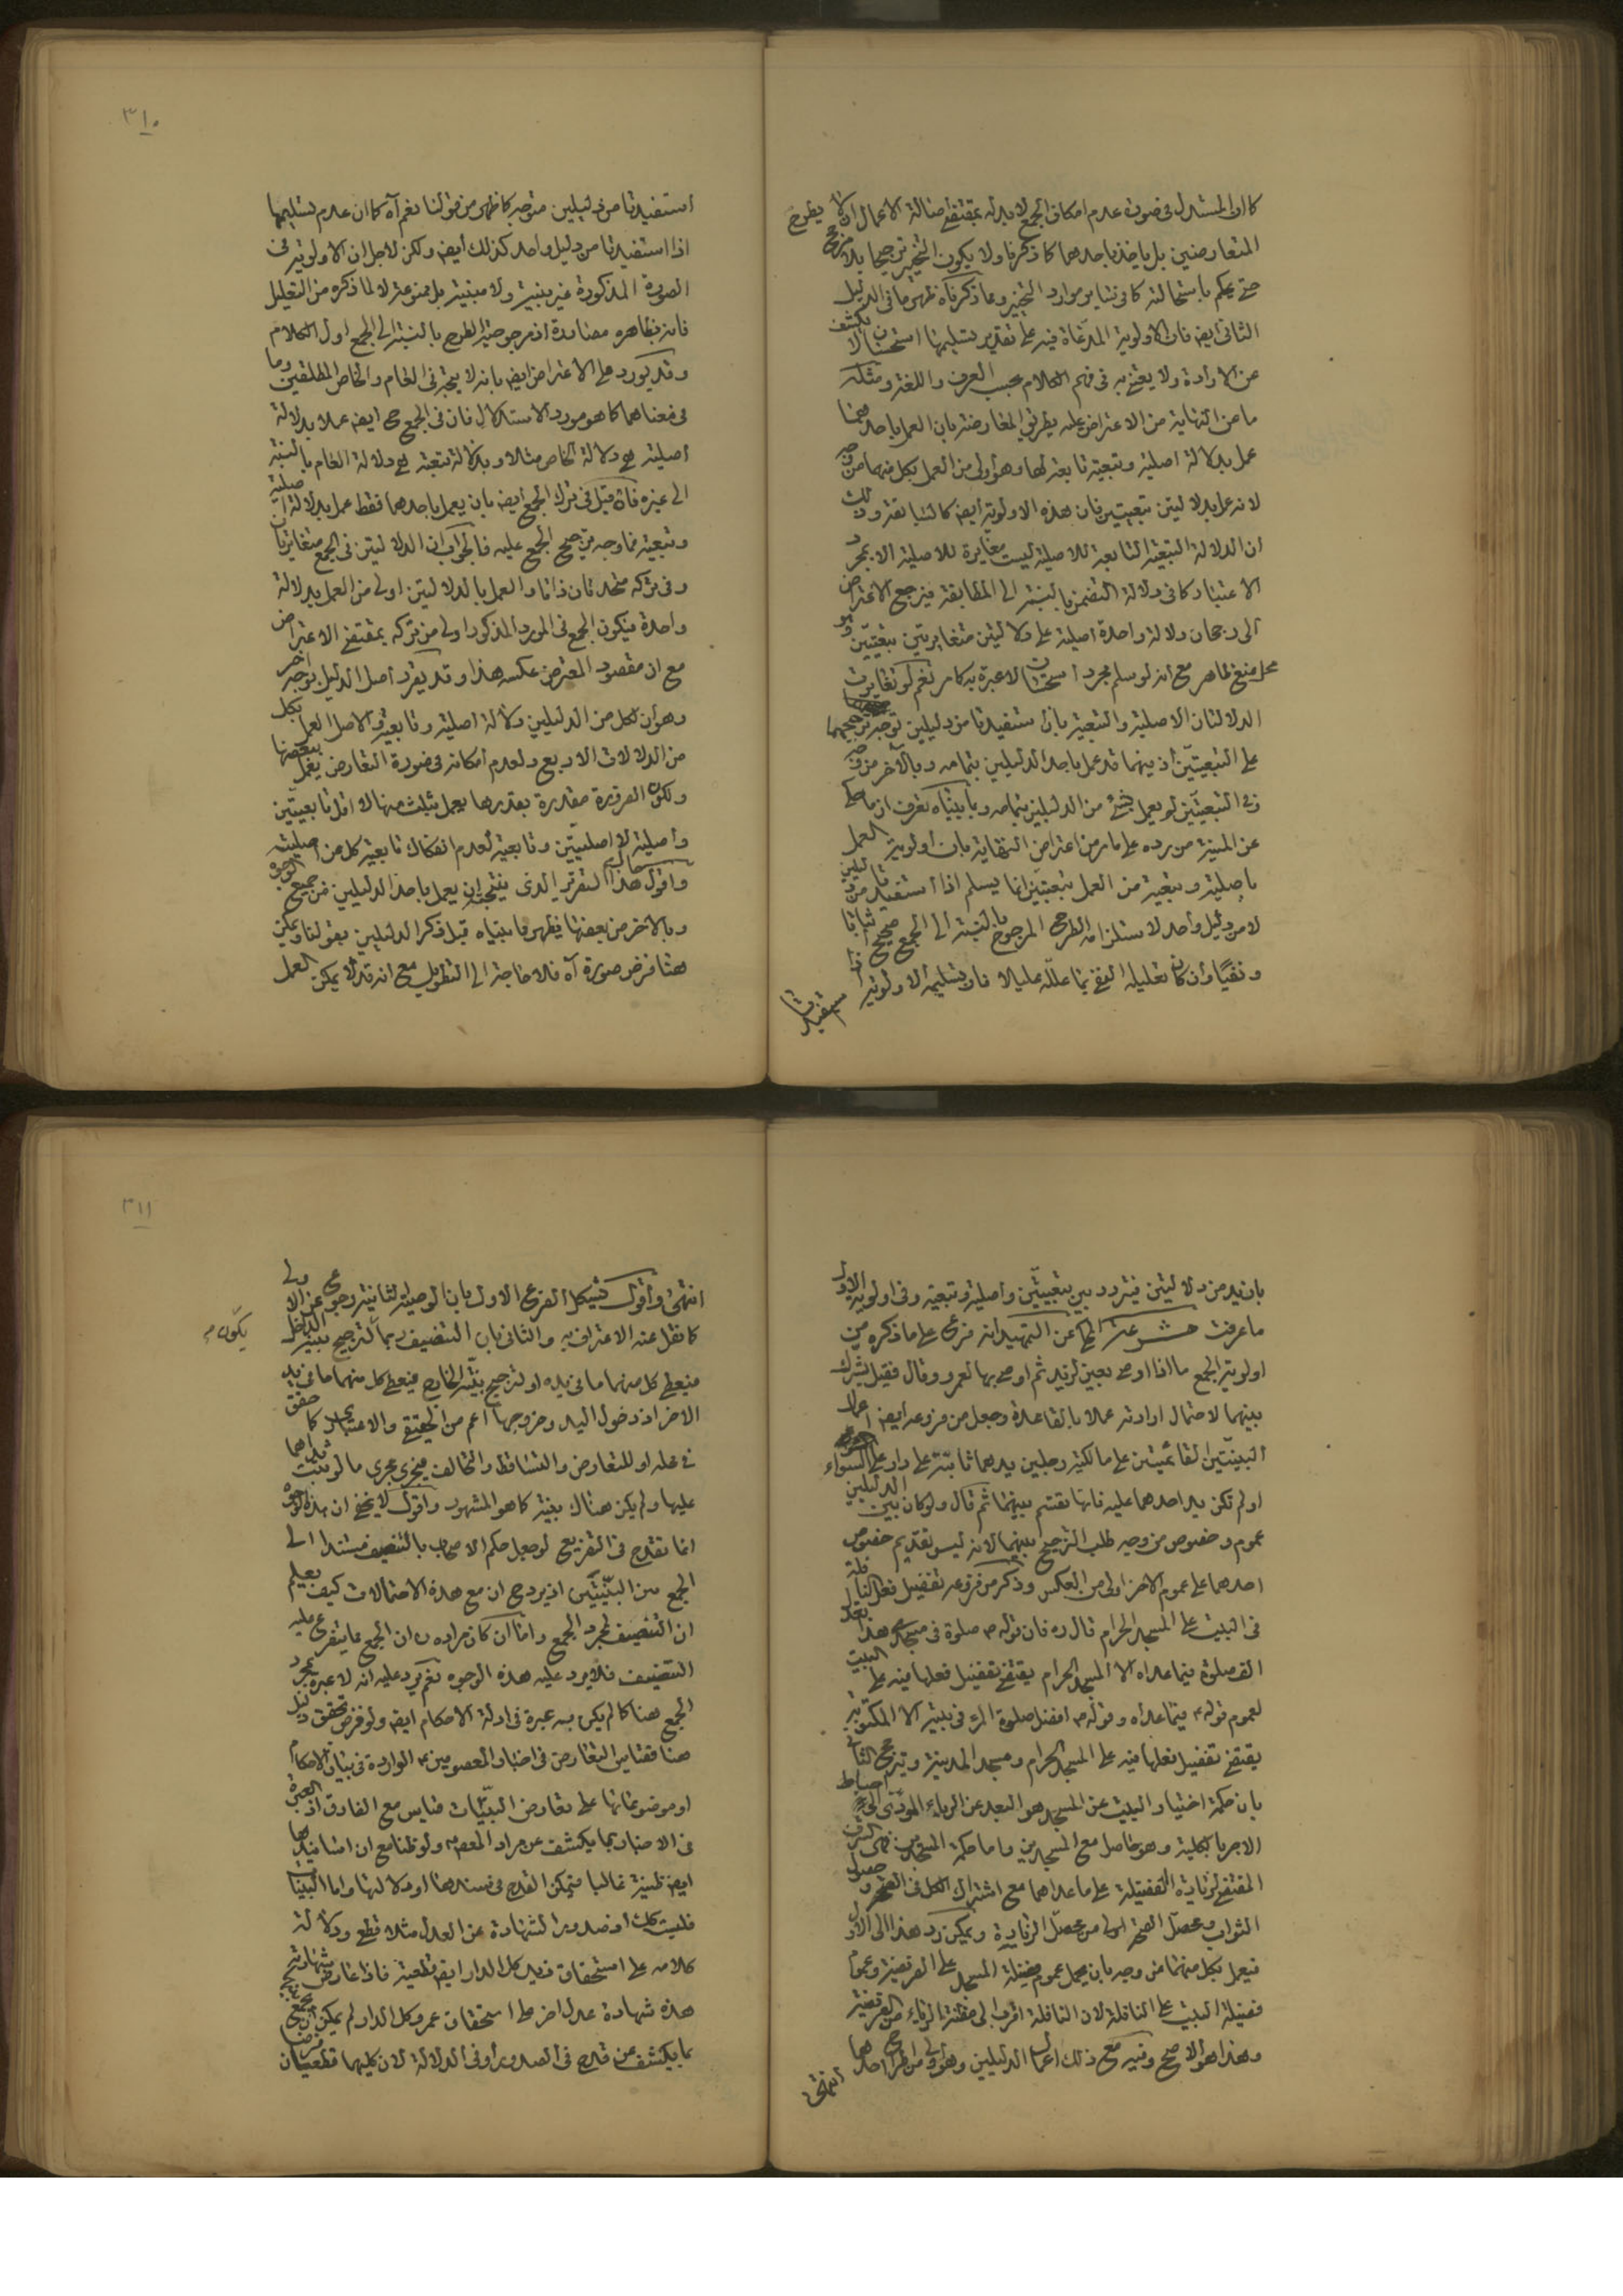 كما ان المستدل في صورة عدم امكان الجمع لا بد له بمقتضى اصالة الاعمال ان لا يطرح
المتعارضين بل ياخذ باحدهما كما ذكرنا ولا يكون التخيير ترجيحا بلا مرجح
حتى يحكم باستحالته كما في سائر موارد التخيير ومما ذكرناه ظهر ما في الدليل
الثاني ايضا فان الاولوية المدعاة فيه على تقدير تسليمها استحسان لا يكشف
عن الارادة ولا يعتنى به في فهم الكلام بحسب العرف واللغة ومثله
ما عن النهاية من الاعتراض عليه بطريق المعارضة بان العمل باحدهما
عمل بدلالة اصلية وتبعية تابعة لها وهو اولى من العمل بكل منهما من وجه
لانه عمل بدلالتين تبعيتين فان هذه الاولوية ايضا كالسابقة وذلك
ان الدلالة التبعية التابعة للاصلية ليست مغايرة للاصلية الا بمجرد
الاعتبار كما في دلالة التضمن بالنسبة الى المطابقة فيرجع الاعتراض
الى رجحان دلالة واحدة اصلية على دلالتين متغايرتين تبعيتين وهو
محل منع ظاهر مع انه لو سلم مجرد استحسان لا عبرة به كما مر نعم لو تغايرت
الدلالتان الاصلية والتبعية بان استفيدتا من دليلين توجه ترجيحهما
على التبعيتين اذ فيهما قد عمل باحد الدليلين بتمامه وبالاخر من وجه
وفي التبعيتين لو يعمل بشئ من الدليلين بتمامه وبما بيناه تعرف ان ما حكي
عن المنية من رده على ما مر من اعتراض النهاية بان اولوية العمل
باصلية وتبعية من العمل بتبعيتين انما يسلم اذا استفيدتا من دليلين
لا من دليل واحد لاستلزامه الطرح المرجوح بالنسبة الى الجمع صحيح اثباتا
ونفيا وان كان تعليله النفي بما علله عليلا فان تسليمه الاولوية اذا
استفيدتا
٣١٠
استفيدتا من دليلين متوجه كما ظهر من قولنا نعم آه كما ان عدم تسليمها
اذا استفيدتا من دليل واحد كذلك ايضا ولكن لاجل ان الاولوية في
الصورة المذكورة غير بينة ولا مبينة بل ممنوعة لا لما ذكره من التعليل
فانه بظاهره مصادرة اذ مرجوحية الطرح بالنسبة الى الجمع اول الكلام
وقد يورد على الاعتراض ايضا بانه لا يتجه في العام والخاص المطلقين وما
في معناهما كما هو مورد الاستدلال فان في الجمع ح ايضا عملا بدلالة
اصلية هي دلالة الخاص مثلا وبدلالة تبعية هي دلالة العام بالنسبة
الى غيره فان قيل في ترك الجمع ايضا بان يعمل باحدهما فقط عمل بدلالة اصلية
وتبعية فما وجه ترجيح الجمع عليه فالجواب ان الدلالتين في الجمع متغايرتان
وفي تركه متحدتان ذاتا والعمل بالدلالتين اولى من العمل بدلالة
واحدة فيكون الجمع في المورد المذكور اولى من تركه بمقتضى الاعتراض
مع ان مقصود المعترض عكسه هذا وقد يقرر اصل الدليل بوجه اخر
وهو ان لكل من الدليلين دلالة اصلية وتابعية والاصل العمل بكل
من الدلالات الاربع ولعدم امكانه في صورة التعارض يعمل ببعضها
ولكون الضرورة مقدرة بقدرها يعمل بثلث منها لا اقل تابعيتين
واصلية لا اصليتين وتابعية لعدم انفكاك تابعية كل من اصليته
واقول هذا التقرير الذي ينتج ان يعمل باحد الدليلين من جميع الوجوه
وبالاخر من بعضها يظهر ما بيناه قبل ذكر الدليلين بقولنا ويمكن
هنا فرض صورة آه فلا حاجة الى التطويل مع انه قد لا يمكن العمل
بازيد من دلالتين فيتردد بين تبعيتين واصلية وتبعية وفي اولوية الاول
ما عرفت ثم المحكي عن التمهيد انه فرع على ما ذكره من
اولوية الجمع ما اذا اوصى بعين لزيد ثم اوصى بها لعمرو وقال فقيل يشرك
بينهما لاحتمال ارادته عملا بالقاعدة وجعل من فروعه ايضا اعمال
البينتين القائمتين على مالكية رجلين يدهما ثابتة على دار على السواء
او لم تكن يد احدهما عليه فانها تقتسم بينهما ثم قال ولو كان بين الدليلين
عموم وخصوص من وجه طلب الترجيح بينهما لانه ليس تقديم خصوص
احدهما على عموم الاخر اولى من العكس وذكر من فروعه تفضيل فعل النافلة
في البيت على المسجد الحرام قال ره فان قوله ص صلوة في مسجدي هذا تعدل
الف صلوة فيما عداه الا المسجد الحرام يقتضي تفضيل فعلها فيه على البيت
لعموم قوله ص فيما عداه وقوله ص افضل صلوة المرء في بيته الا المكتوبة
يقتضي تفضيل فعلها فيه على المسجد الحرام ومسجد المدينة وترجح الثاني
بان حكمة اختيار البيت عن المسجد هو البعد عن الرياء المؤدي الى احباط
الاجر بالكلية وهو حاصل مع المسجدين واما حكمة المسجدين فهي الشرف
المقتضي لزيادة الفضيلة على ما عداهما مع اشتراك الكل في الصحة وحصول
الثواب ومحصل الصحة اولى من محصل الزيادة ويمكن رد هذا الى الاول
فيعمل بكل منهما من وجه بان يحمل عموم فضيلة المسجد على الفريضة وعموم
فضيلة البيت على النافلة لان النافلة اقرب الى مظنة الرياء من الفريضة
وهذا هو الاصح وفيه مع ذلك اعمال الدليلين وهو اولى من اطراح احدهما
انتهى
٣١١
انتهى واقول يشكل الفرع الاول بان الوصية الثانية رجوع عن الاولى
كما نقل عنه الاعتراف به والثاني بان التنصيف ربما لترجيح بينة الداخل
فيعطى كل منهما ما في يده او لترجيح بينة الخارج فيعطى كل منهما ما في يد
الاخر اذ دخول اليد وخروجها اعم من الحقيقي والاعتباري كما حقق
في محله او للتعارض والتساقط والتحالف فيجري مجرى ما لو ثبت يداهما
عليها ولم يكن هناك بينة كما هو المشهور واقول لا يخفى ان هذه الوجوه
انما تقدح في التفريع لو جعل حكم الاصحاب بالتنصيف مستندا الى
الجمع بين البينتين اذ يرد ح ان مع هذه الاحتمالات كيف يعلم
ان التنصيف لمجرد الجمع واما ان كان مراده ره ان الجمع مما يتفرع عليه
التنصيف فلا يرد عليه هذه الوجوه نعم يرد عليه انه لا عبرة بمجرد
الجمع هنا كما لم يكن به عبرة في ادلة الاحكام ايضا ولو فرض تحقق دليل
هنا فقياس التعارض في اخبار المعصومين ع الواردة في بيان الاحكام
او موضوعاتها على تعارض البينات قياس مع الفارق اذ العبرة
في الاخبار بما يكشف عن مراد المعصوم ولو ظنا مع ان اسانيدها
ايضا ظنية غالبا فيمكن القدح في سندها او دلالتها واما البينات
فليست كك اذ صدور الشهادة عن العدل مثلا قطع ودلالة
كلامه على استحقاق زيد كل الدار ايضا قطعية فاذا عارض شهادته
هذه شهادة عدل اخر على استحقاق عمرو كل الدار لم يمكن ان يجمع بينهما
بما يكشف عن قدح في الصدور او في الدلالة لان كليهما قطعيان
يكون